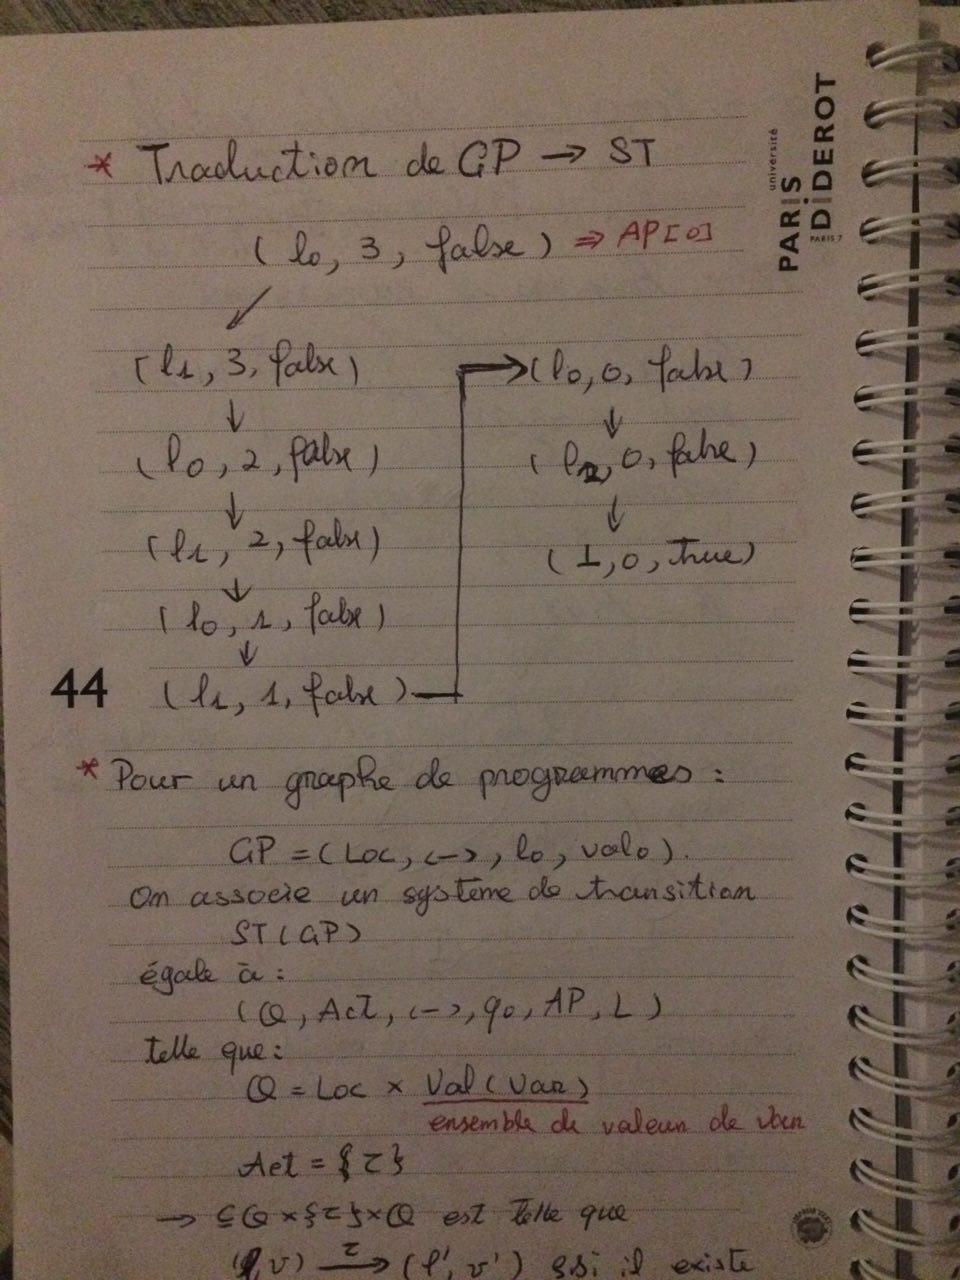 * Traduction de GP → ST
université
PARIS
DiDEROT
PARIS 7
( l0, 3, false ) ⇒ AP[0]
↙
( l1, 3, false )
↓
( l0, 2, false )
↓
( l1, 2, false )
↓
( l0, 1, false )
↓
( l1, 1, false ) →
( l0, 0, false )
↓
( l2, 0, false )
↓
( ⊥, 0, true )
44
* Pour un graphe de programmes :
GP = ( Loc, ↪, l0, val0 ).
On associe un système de transition
ST ( GP )
égale à :
( Q, Act, ↪, q0, AP, L )
telle que :
Q = Loc × Val ( Var )
ensemble de valeur de var
Act = { τ }
→ ⊆ Q × { τ } × Q est telle que
( l, v ) —τ→ ( l', v' ) ssi il existe